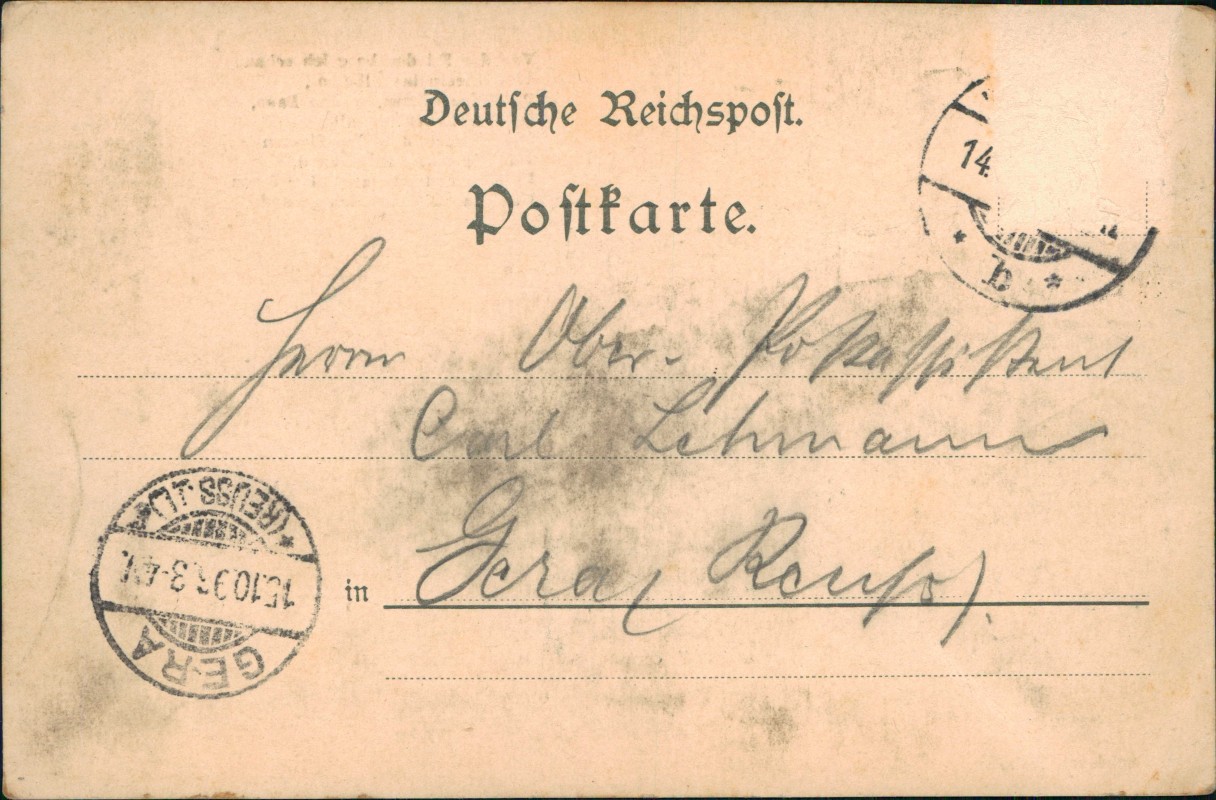 Deutsche Reichspost.
Postkarte.
14.
b
Herrn Ober-Postassistent
Carl Lehmann
in Gera (Reuss).
GERA
(REUSS J.L.)